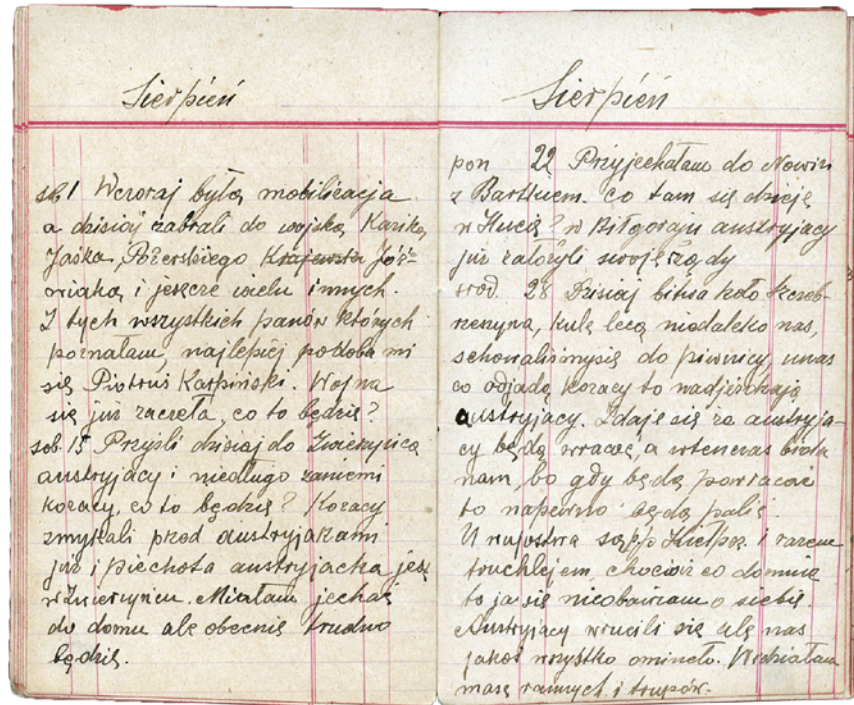 Sierpień
sob. 1 Wczoraj była mobilizacja
a dzisiaj zabrali do wojska Kazika,
Jaśka, Pożerskiego Krajewsk Jóź-
wiaka, i jeszcze wielu innych.
Z tych wszystkich panów których
poznałam, najlepiej podoba mi
się Piotruś Karpiński. Wojna
się już zaczęła, co to będzie?
sob. 15 Przyśli dzisiaj do Zwierzyńca
austryjacy i niedługo zaniemi
kozacy, co to będzie? Kozacy
zmykali przed austryjakami
już i piechota austryjacka jest
w Zwierzyńcu. Miałam jechać
do domu ale obecnie trudno
będzie.
Sierpień
pon 22 Przyjechałam do Nowin
z Bartkiem. Co tam się dzieję
w Hucie? w Biłgoraju austryjacy
już założyli swoje rządy
srod. 28 Dzisiaj bitwa koło Szczeb-
rzeszyna, kule lecą niedaleko nas,
schowaliśmysię do piwnicy, unas
co odjadą kozacy to nadjeżdżają
austryjacy. Zdaje się że austryja-
cy będą wracać, a wtenczas biada
nam, bo gdy będą powracać
to napewno będą palić.
U wujostwa są pp. i razem
truchlejem, chociaż co domnie
to ja się nieobawiam o siebie.
Austryjacy wrucili się ale nas
jakoś wszystko ominęło. Widziałam
masę rannych i trupów.